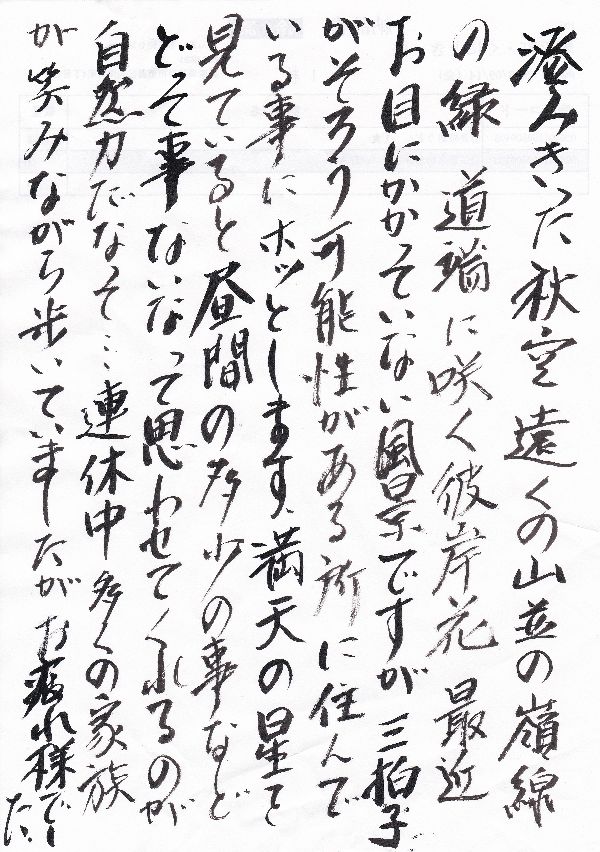 澄みきいた秋空遠くの山並の嶺線
の緑 道端に咲く彼岸花 最近
お目にかかってい​ない風景ですが 三拍子
がそろう可能性がある所に住んで
いる事にホッとします、満天の星を
見ていると昼間の多少の事など
どって事ないなって思わせてくれるのが
自然力だなって… 連休中多くの家族
が笑みながら歩いていましたが お疲れ様でした